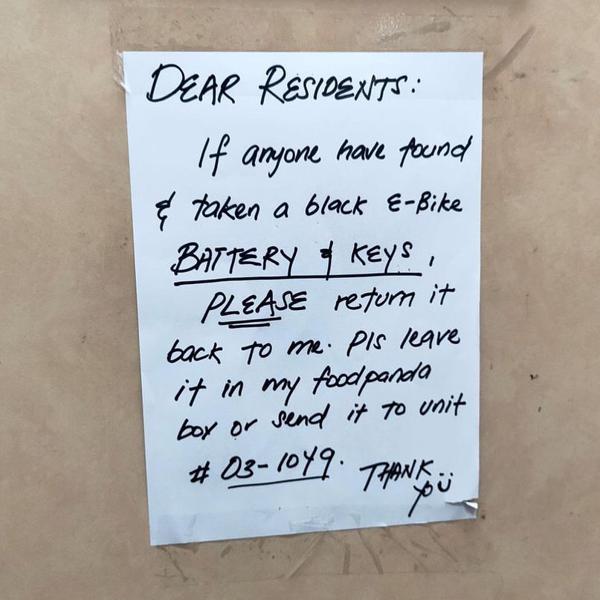 DEAR RESIDENTS:
If anyone have found
& taken a black E-Bike
BATTERY & KEYS,
PLEASE return it
back to me. Pls leave
it in my foodpanda
box or send it to unit
# 03-1049. THANK
you